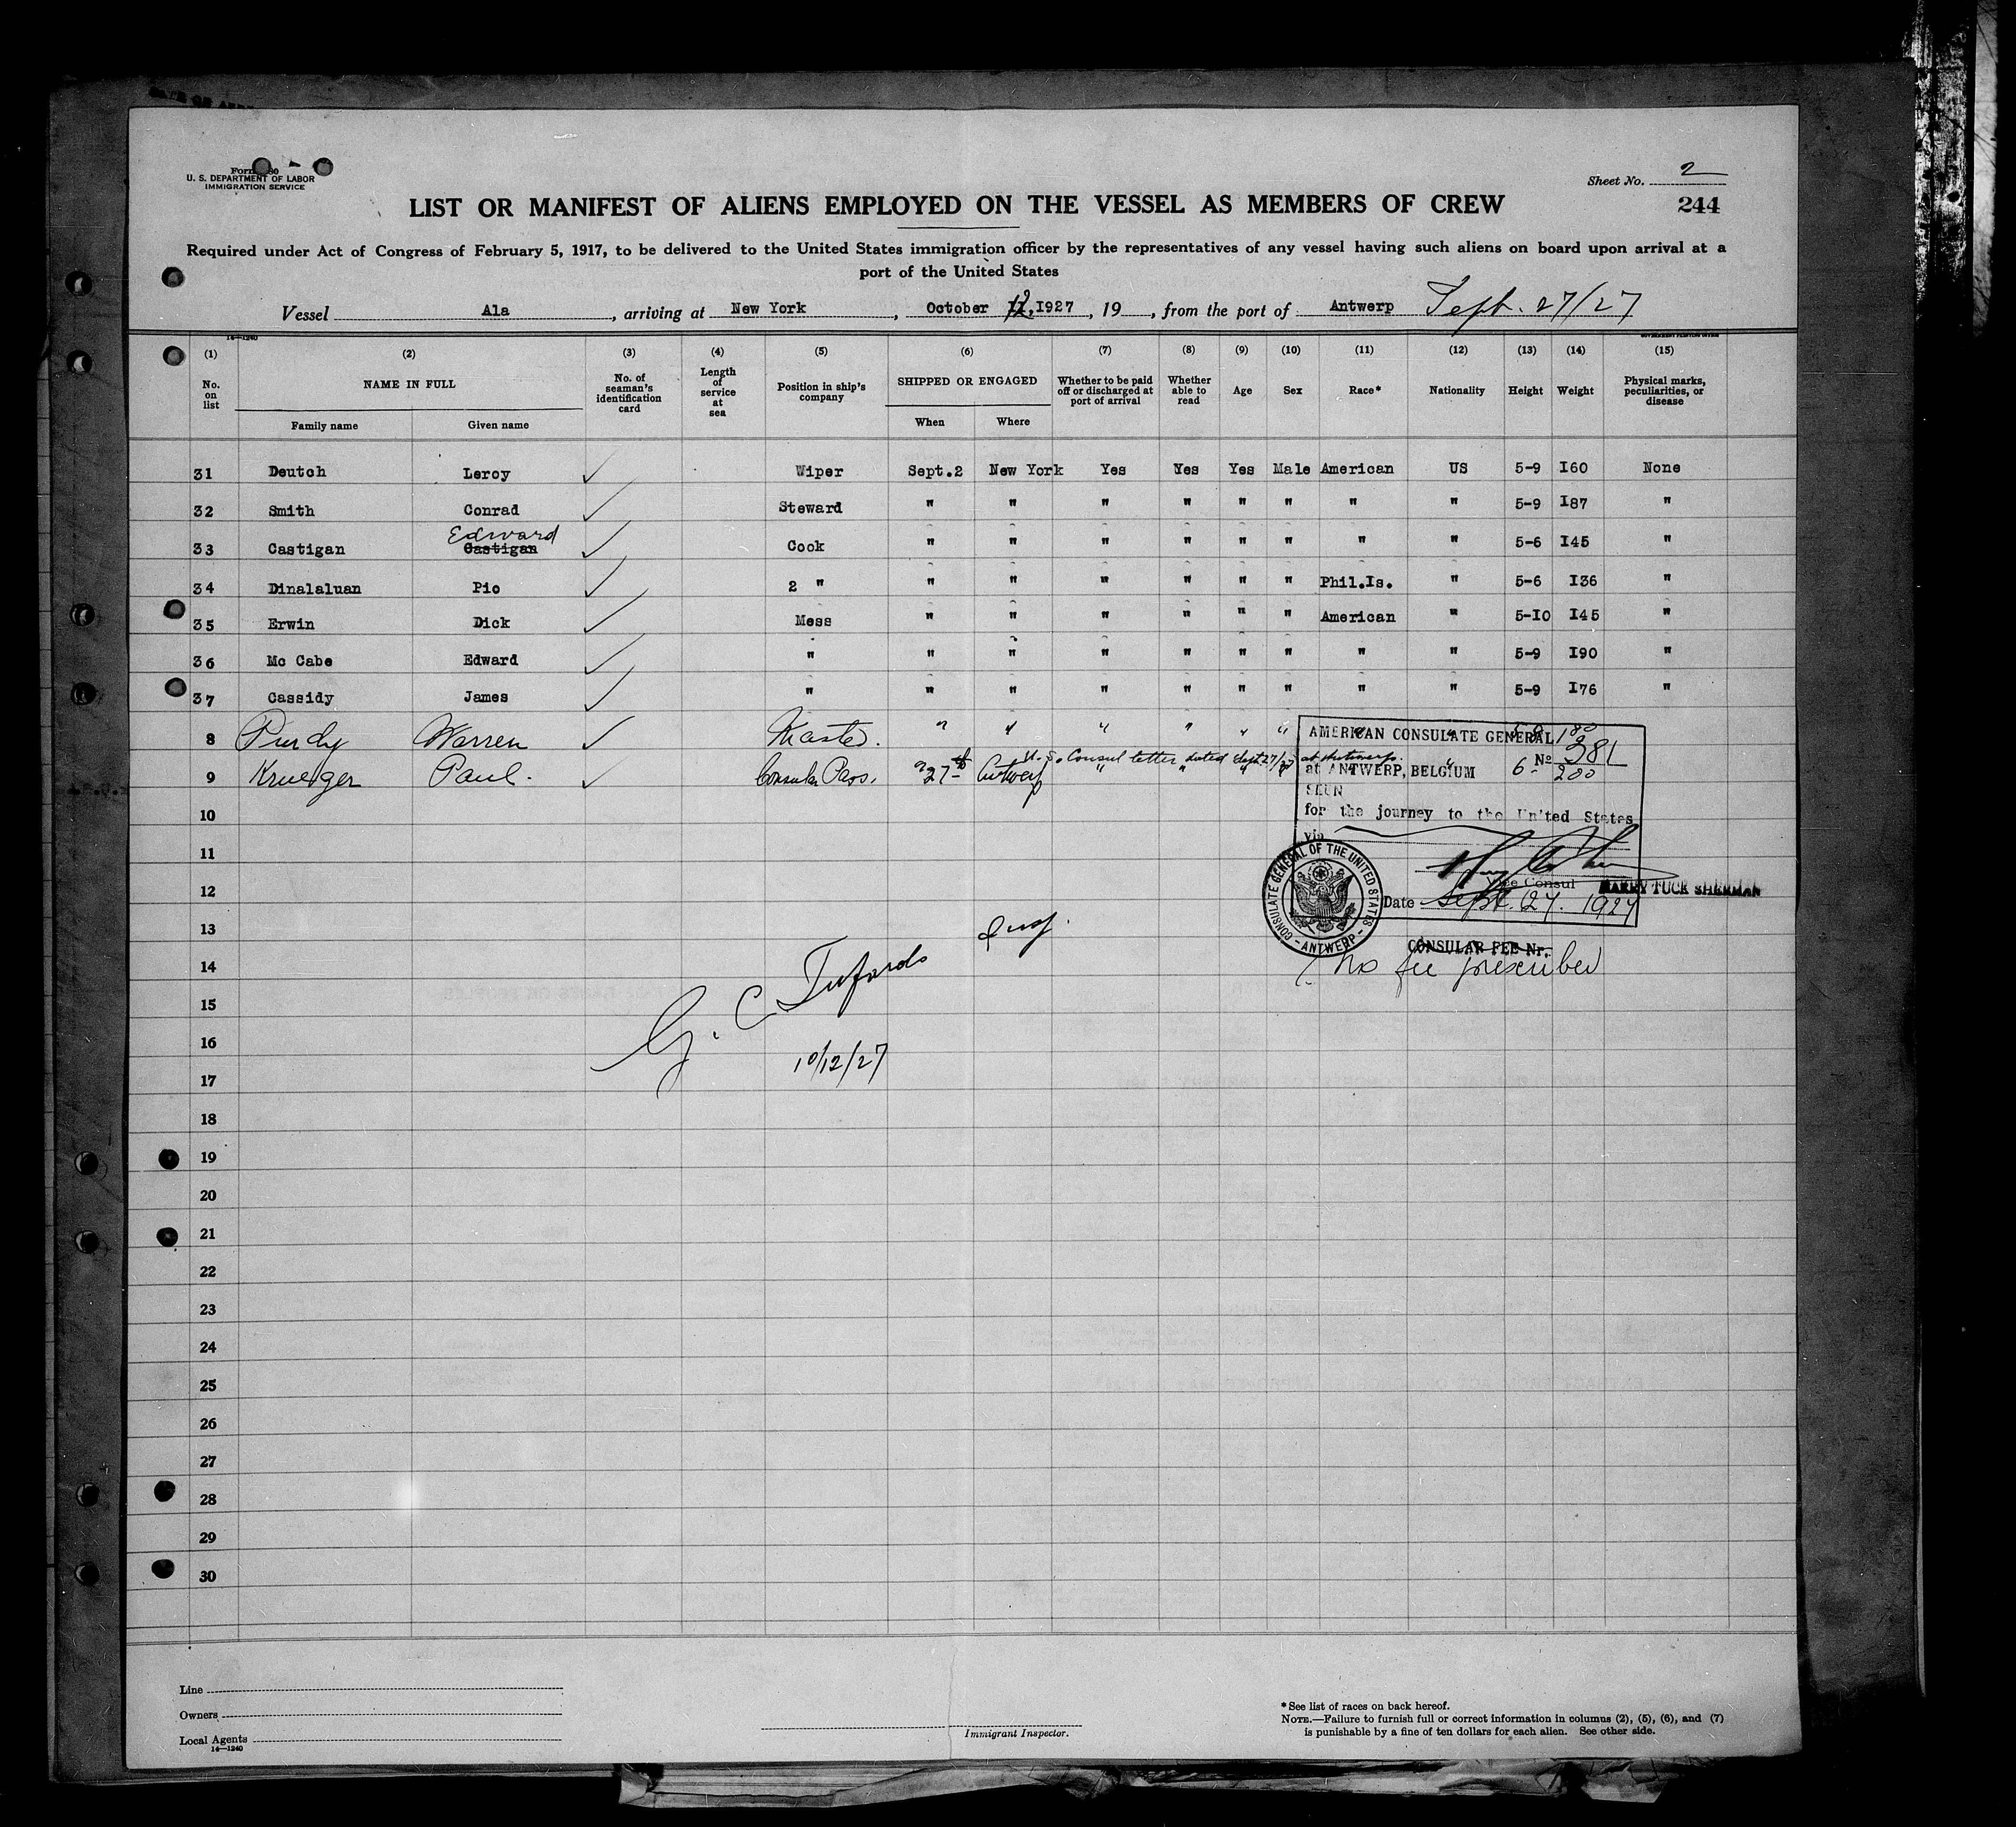 Sheet No. 2
U. S. DEPARTMENT OF LABOR
IMMIGRATION SERVICE
LIST OR MANIFEST OF ALIENS EMPLOYED ON THE VESSEL AS MEMBERS OF CREW
244
Required under Act of Congress of February 5, 1917, to be delivered to the United States immigration officer by the representatives of any vessel having such aliens on board upon arrival at a
port of the United States
Vessel Ala, arriving at New York, October 12, 1927, 19, from the port of Antwerp Sept. 27/27
14—1240
(1) (2) (3) (4) (5) (6) (7) (8) (9) (10) (11) (12) (13) (14) (15)
No. on list NAME IN FULL No. of seaman's identification card Length of service at sea Position in ship's company SHIPPED OR ENGAGED Whether to be paid off or discharged at port of arrival Whether able to read Age Sex Race* Nationality Height Weight Physical marks, peculiarities, or disease
Family name Given name When Where
31 Deutch Leroy ✓ Wiper Sept.2 New York Yes Yes Yes Male American US 5-9 I60 None
32 Smith Conrad ✓ Steward " " " " " " " " 5-9 I87 "
Edward
33 Castigan Castigan ✓ Cook " " " " " " " " 5-6 I45 "
34 Dinalaluan Pio ✓ 2 " " " " " " " Phil.Is. " 5-6 I36 "
35 Erwin Dick ✓ Mess " " " " " " American " 5-10 I45 "
36 Mc Cabe Edward ✓ " " " " " " " " " 5-9 I90 "
37 Cassidy James ✓ " " " " " " " " " 5-9 I76 "
8 Purdy Warren ✓ Master. " " " " " " " " 5-8 180
U.S. Consul letter dated Sept 27/27 at Antwerp.
9 Krueger Paul. ✓ Consular Pass. " 27th Antwerp " " " " " " 6- 200
AMERICAN CONSULATE GENERAL
No 381
at ANTWERP, BELGIUM
SEEN
for the journey to the United States
via
Vice Consul HARRY TUCK SHERMAN
Date Sept. 27. 1927
CONSULATE GENERAL OF THE UNITED STATES
- ANTWERP -
CONSULAR FEE Nr.
No fee prescribed
10
11
12
13
14
15
16
17
18
19
20
21
22
23
24
25
26
27
28
29
30
G. C.
10/12/27
Line
Owners
Local Agents
14—1240
Immigrant Inspector.
*See list of races on back hereof.
NOTE.—Failure to furnish full or correct information in columns (2), (5), (6), and (7)
is punishable by a fine of ten dollars for each alien. See other side.